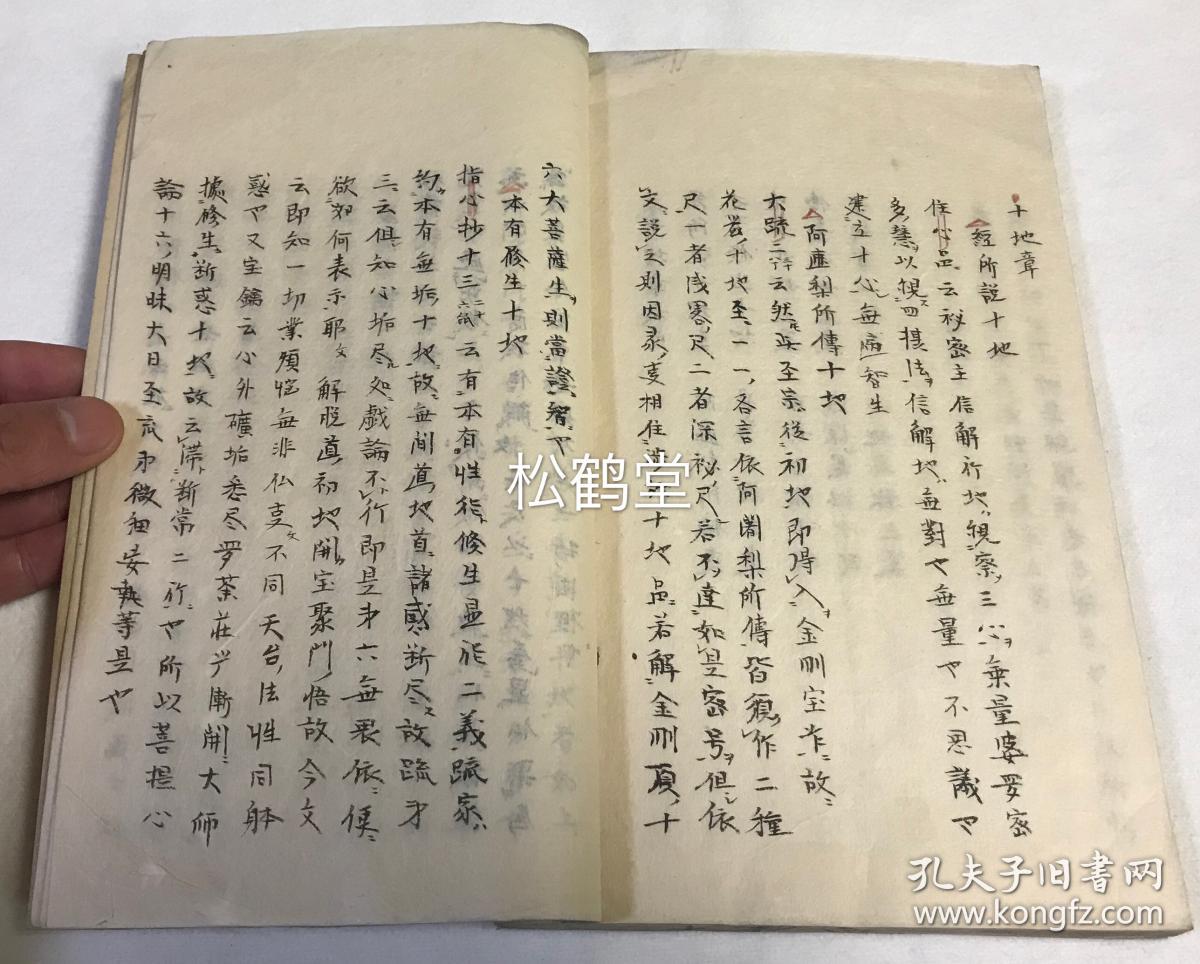 十地章
經所説十地
住心品云秘密主信解行地觀察三心無量波罗密
多慧以観四摂法信解地無對ヤ無量ヤ不思議ヤ
建立十心無邉智生
阿闍梨所傳十地
大疏二云然此至宗従初地即得入金剛宝蔵故
花嚴十地至一一各言依阿闍梨所傳皆須作二種
尺一者浅畧尺二者深秘尺若不達如是密号但依
文説之則因縁事相住十地品若解金剛頂十
六大菩薩生則當證智ヤ
本有修生十地
指心抄十三云有本有性能修生显能二義疏家
約本有無垢十地故無間道地首諸惑断尽故疏才
三云俱知心垢尽処戯論不行即是才六無畏依便
欲如何表示耶文解脱道初地開宝聚門悟故今文
云即知一切業煩惱無非仏事文不同天台法性同躰
惑ヤ又宝鑰云心外礦垢悉尽曼荼荘严漸開大師
據修生断惑十地故云滞断常二行ヤ所以菩提心
論十六明昧大日至微細妄執等是ヤ
松鹤堂
孔夫子旧书网
www.kongfz.com